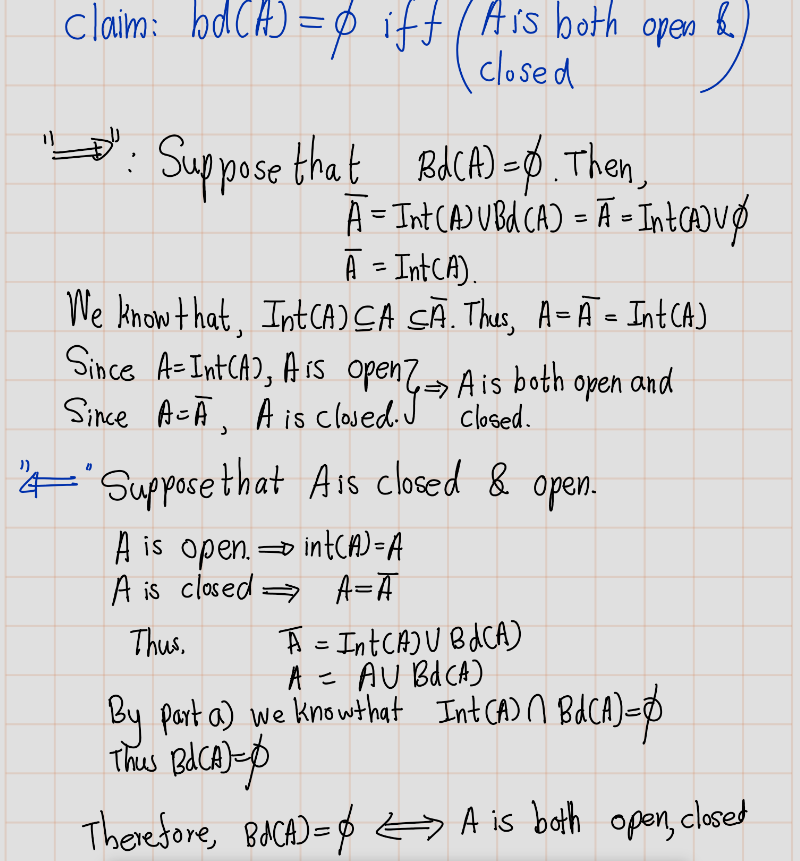 claim: bd(A) = ϕ iff (A is both open & closed)
"⟹": Suppose that Bd(A) = ϕ. Then,
A̅ = Int(A) ∪ Bd(A) = A̅ = Int(A) ∪ ϕ
A̅ = Int(A).
We know that, Int(A) ⊆ A ⊆ A̅. Thus, A = A̅ = Int(A)
Since A = Int(A), A is open
Since A = A̅, A is closed.
} ⇒ A is both open and
closed.
"⟸" Suppose that A is closed & open.
A is open. ⟹ int(A) = A
A is closed ⟹ A = A̅
Thus. A̅ = Int(A) ∪ Bd(A)
A = A ∪ Bd(A)
By part a) we know that Int(A) ∩ Bd(A) = ϕ
Thus Bd(A) = ϕ
Therefore, Bd(A) = ϕ ⟺ A is both open, closed